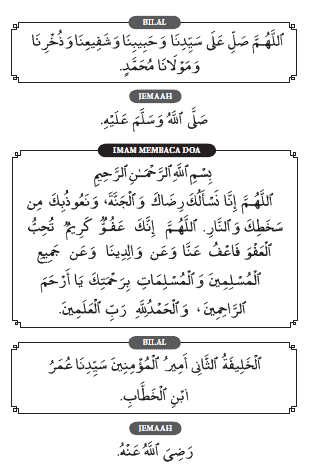 BILAL
اَللَّهُمَّ صَلِّ عَلَى سَيِّدِنَا وَحَبِيبِنَا وَشَفِيعِنَا وَذُخْرِنَا
وَمَوْلَانَا مُحَمَّدٍ.
JEMAAH
صَلَّى اللهُ وَسَلَّمَ عَلَيْهِ.
IMAM MEMBACA DOA
بِسْمِ اللهِ الرَّحْمَـٰنِ الرَّحِيمِ
اَللَّهُمَّ إِنَّا نَسْأَلُكَ رِضَاكَ وَالْجَنَّةَ، وَنَعُوذُبِكَ مِن
سَخَطِكَ وَالنَّارِ. اَللَّهُمَّ إِنَّكَ عَفُوٌّ كَرِيمٌ تُحِبُّ
الْعَفْوَ فَاعْفُ عَنَّا وَعَن وَالِدِينَا وَعَن جَمِيعِ
الْمُسْلِمِينَ وَالْمُسْلِمَاتِ بِرَحْمَتِكَ يَا أَرْحَمَ
الرَّاحِمِينَ، وَالْحَمْدُلِلَّهِ رَبِّ الْعَلَمِينَ.
BILAL
اَلْخَلِيفَةُ الثَّانِى أَمِيرُ الْمُؤْمِنِينَ سَيِّدِنَا عُمَرُ
ابْنِ الْخَطَّابِ.
JEMAAH
رَضِيَ اللهُ عَنْهُ.